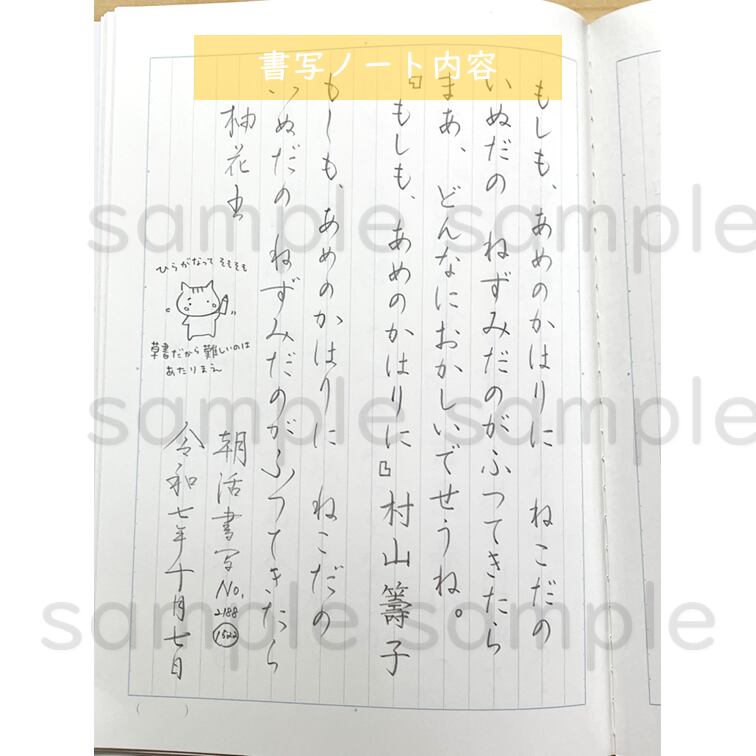 書写ノート内容
もしも、あめのかはりに ねこだの
いぬだの ねずみだのがふつてきたら
まあ、どんなにおかしいでせうね。
『もしも、あめのかはりに』村山籌子
もしも、あめのかはりに ねこだの
いぬだの ねずみだのがふつてきたら
柚花
ひらがなって そもそも
草書だから難しいのは
あたりまえ
朝活書写No.
2188
1522
令和七年十月七日
sample sample
sample sample
sample sample